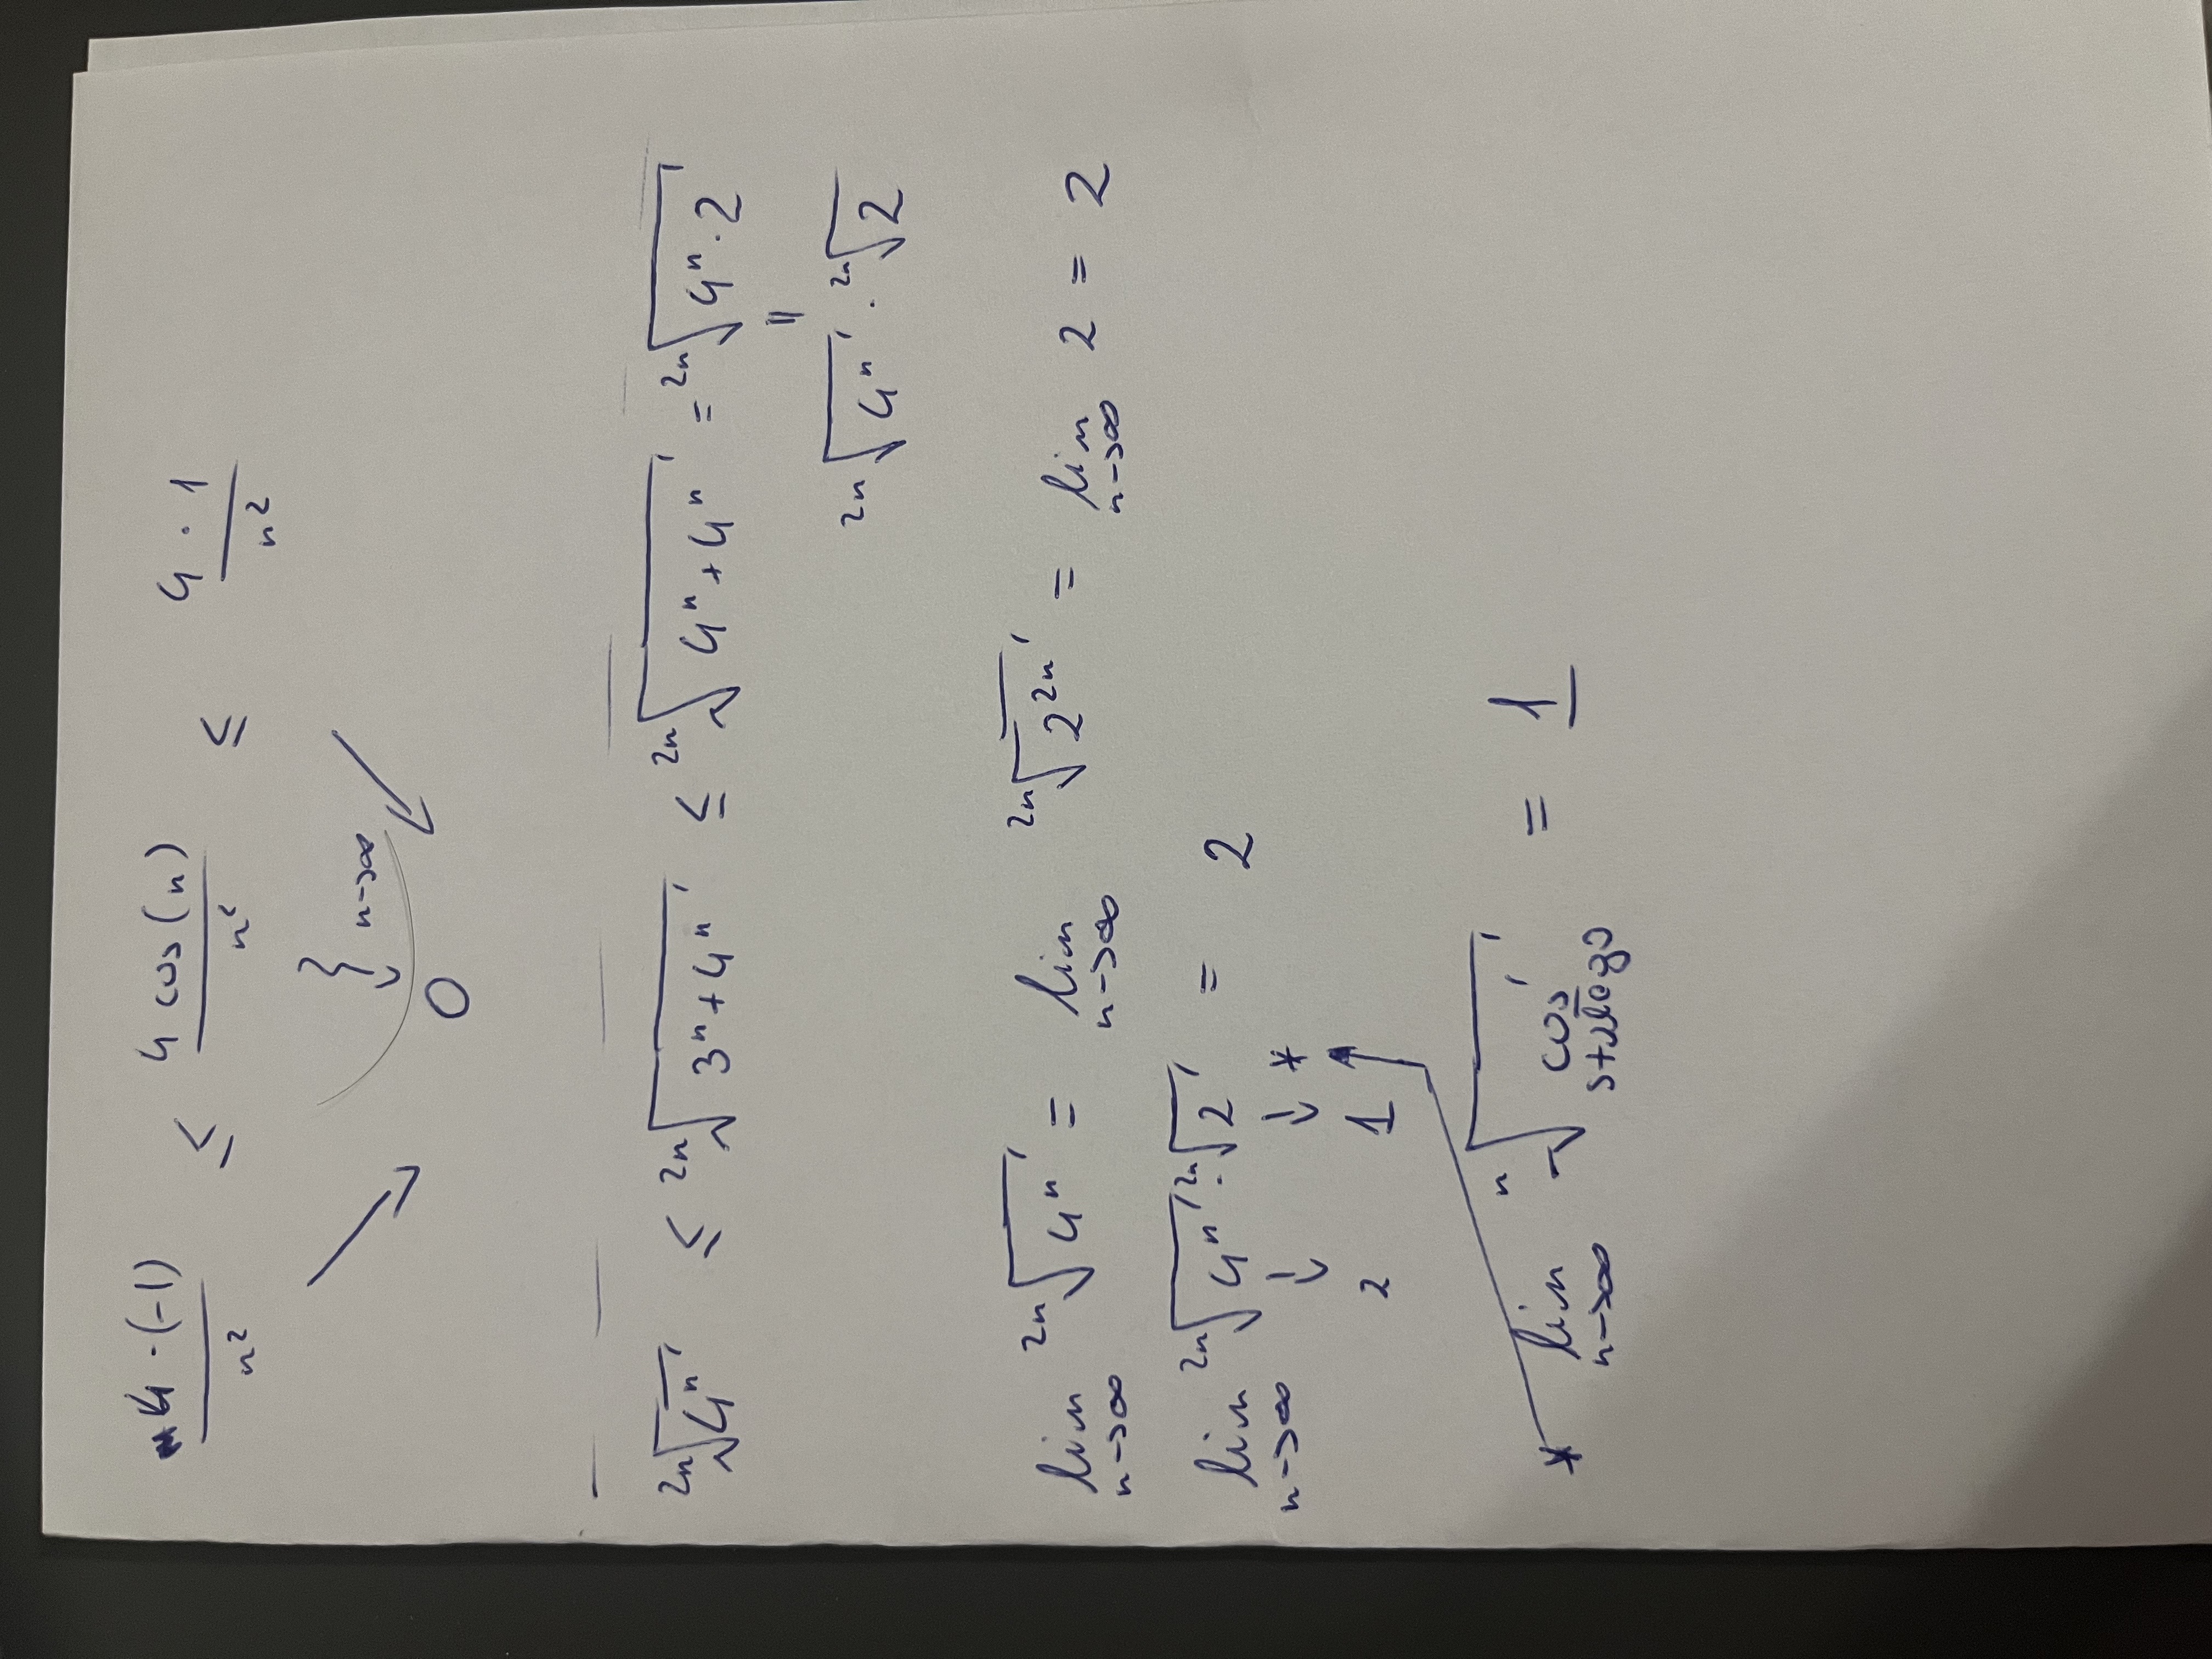 4·(-1)/n² ≤ 4 cos(n)/n² ≤ 4·1/n²
↘ ↓ n→∞ ↙
0
²ⁿ√4ⁿ ≤ ²ⁿ√(3ⁿ+4ⁿ) ≤ ²ⁿ√(4ⁿ+4ⁿ) = ²ⁿ√(4ⁿ·2)
=
²ⁿ√4ⁿ · ²ⁿ√2
lim n→∞ ²ⁿ√4ⁿ = lim n→∞ ²ⁿ√2²ⁿ = lim n→∞ 2 = 2
lim n→∞ ²ⁿ√4ⁿ · ²ⁿ√2 = 2
↓ ↓ *
2 1
* lim n→∞ ⁿ√(coś stałego) = 1